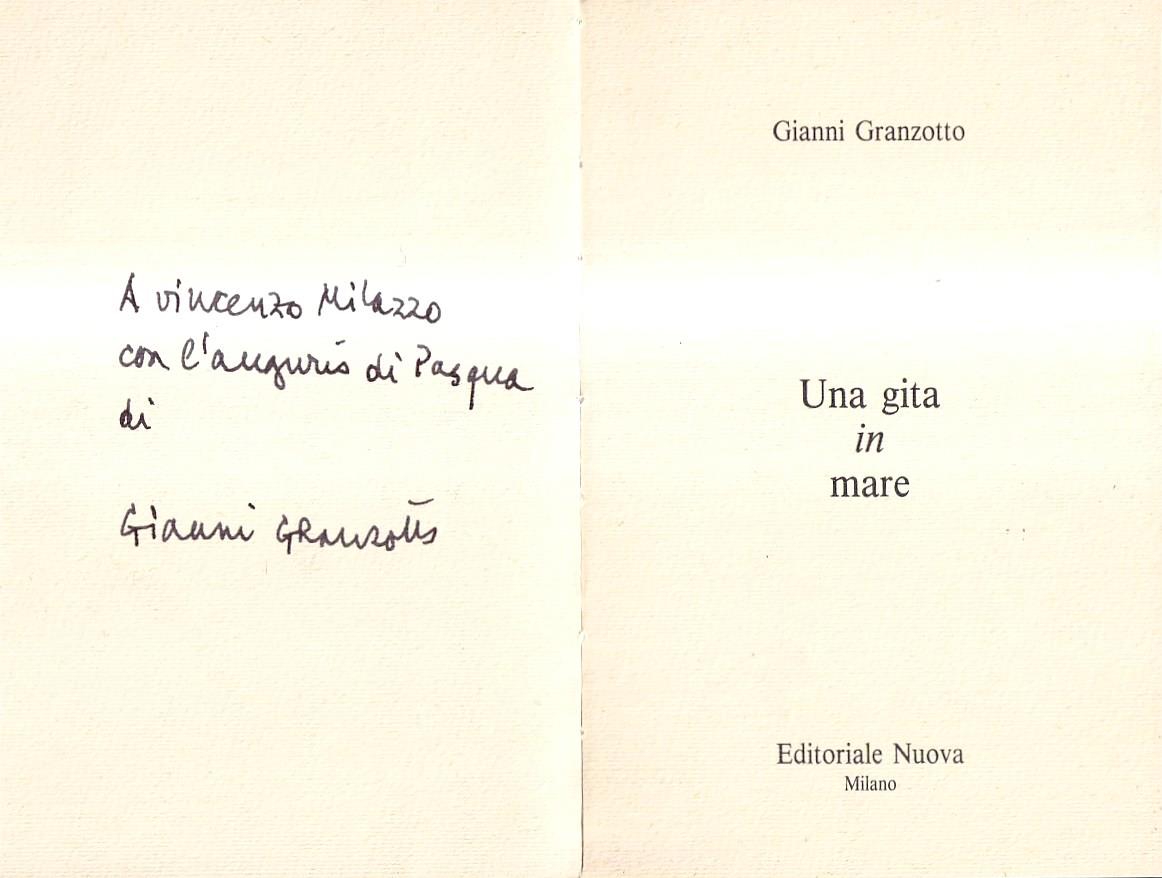 A vincenzo Milazzo
con l'augurio di Pasqua
di
Gianni Granzotto
Gianni Granzotto
Una gita
in
mare
Editoriale Nuova
Milano